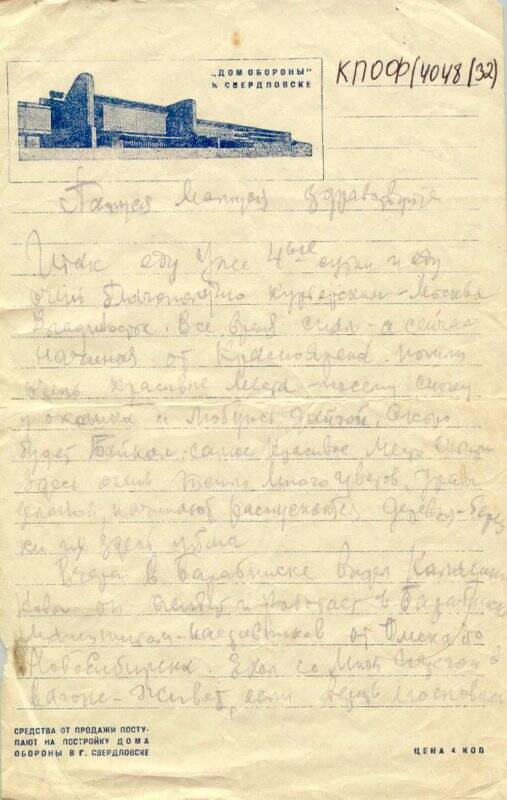 „ДОМ ОБОРОНЫ"
в СВЕРДЛОВСКЕ
КПОФ(4048/32)
Папуся Мамуся здравствуйте
Итак еду уже 4ые сутки и еду
очень благополучно курьерским - Москва
Владивосток. Все время спал - а сейчас
начиная от Красноярска пошли
очень красивые места -
у окошка и любуюсь тайгой. Скоро
будет Байкал, самое красивое место
здесь очень тепло много цветов, трава
начинают распускаться деревья - берез
ки их здесь уйма
Вчера в Барабинске видел
он живет и работает в Барабинске
от Омска до
Новосибирска. Ехал со мной
вагоне - живет, если
СРЕДСТВА ОТ ПРОДАЖИ ПОСТУ-
ПАЮТ НА ПОСТРОЙКУ ДОМА
ОБОРОНЫ В Г. СВЕРДЛОВСКЕ
ЦЕНА 4 КОП